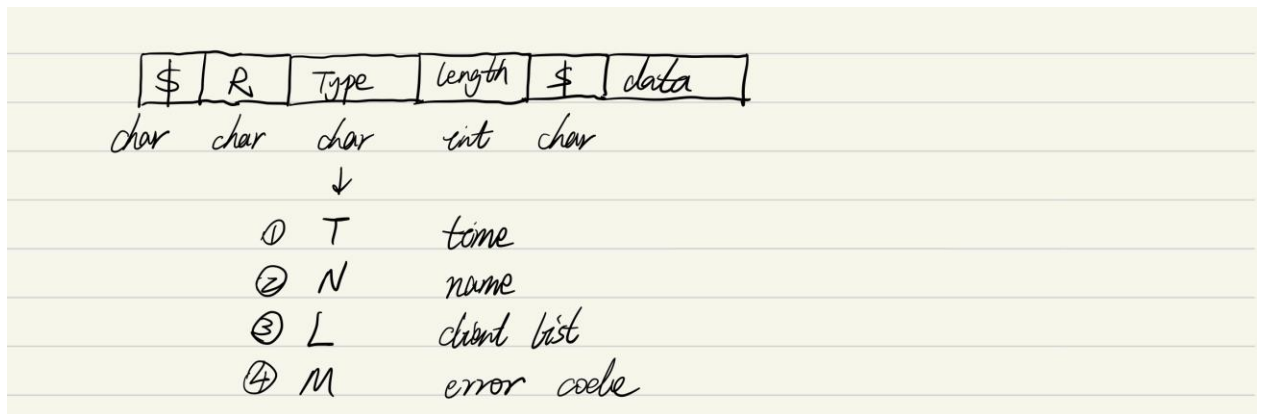 $ R Type length $ data
char char char int char
↓
① T time
② N name
③ L client list
④ M error code